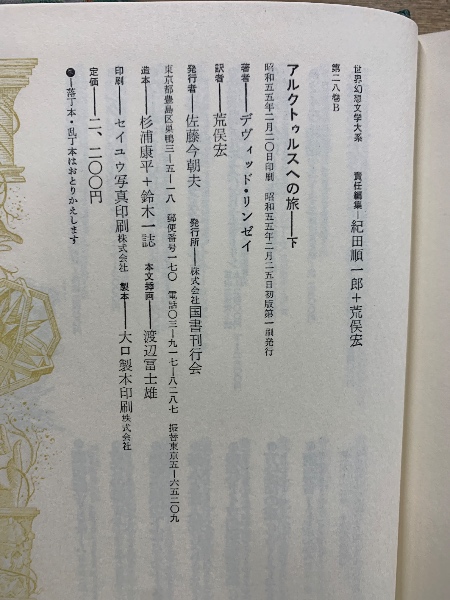 世界幻想文学大系　責任編集―紀田順一郎+荒俣宏
第二八巻B
アルクトゥルスへの旅――下
昭和五五年二月二〇日印刷　昭和五五年二月二五日初版第一刷発行
著者――デヴィッド・リンゼイ
訳者――荒俣宏
発行者――佐藤今朝夫　発行所――株式会社国書刊行会
東京都豊島区巣鴨三―五―一八　郵便番号一七〇　電話〇三―九一七―八二八七　振替東京五―六五二〇九
造本――杉浦康平+鈴木一誌　本文挿画――渡辺冨士雄
印刷――セイユウ写真印刷株式会社　製本――大口製本印刷株式会社
定価――二、二〇〇円
●―落丁本・乱丁本はおとりかえします